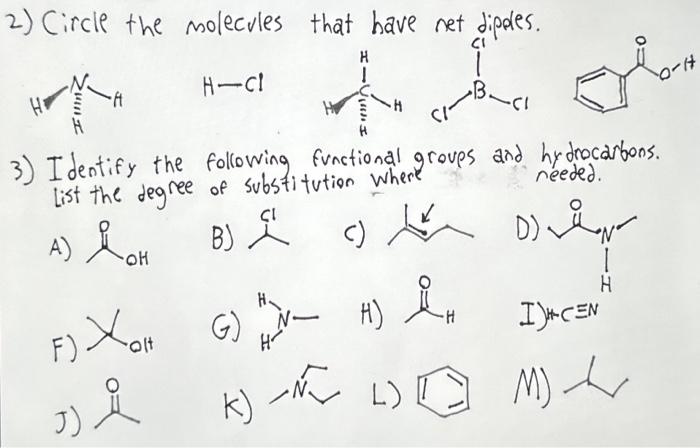 2) Circle the molecules that have net dipoles.
N H H H
H—Cl
H C H H H
Cl B Cl Cl
O O-H
3) Identify the following functional groups and hydrocarbons.
List the degree of substitution where needed.
A) O OH
B) Cl
C)
D) O N H
F) OH
G) H N H
H) O H
I) H-C≡N
J) O
K) N
L)
M)